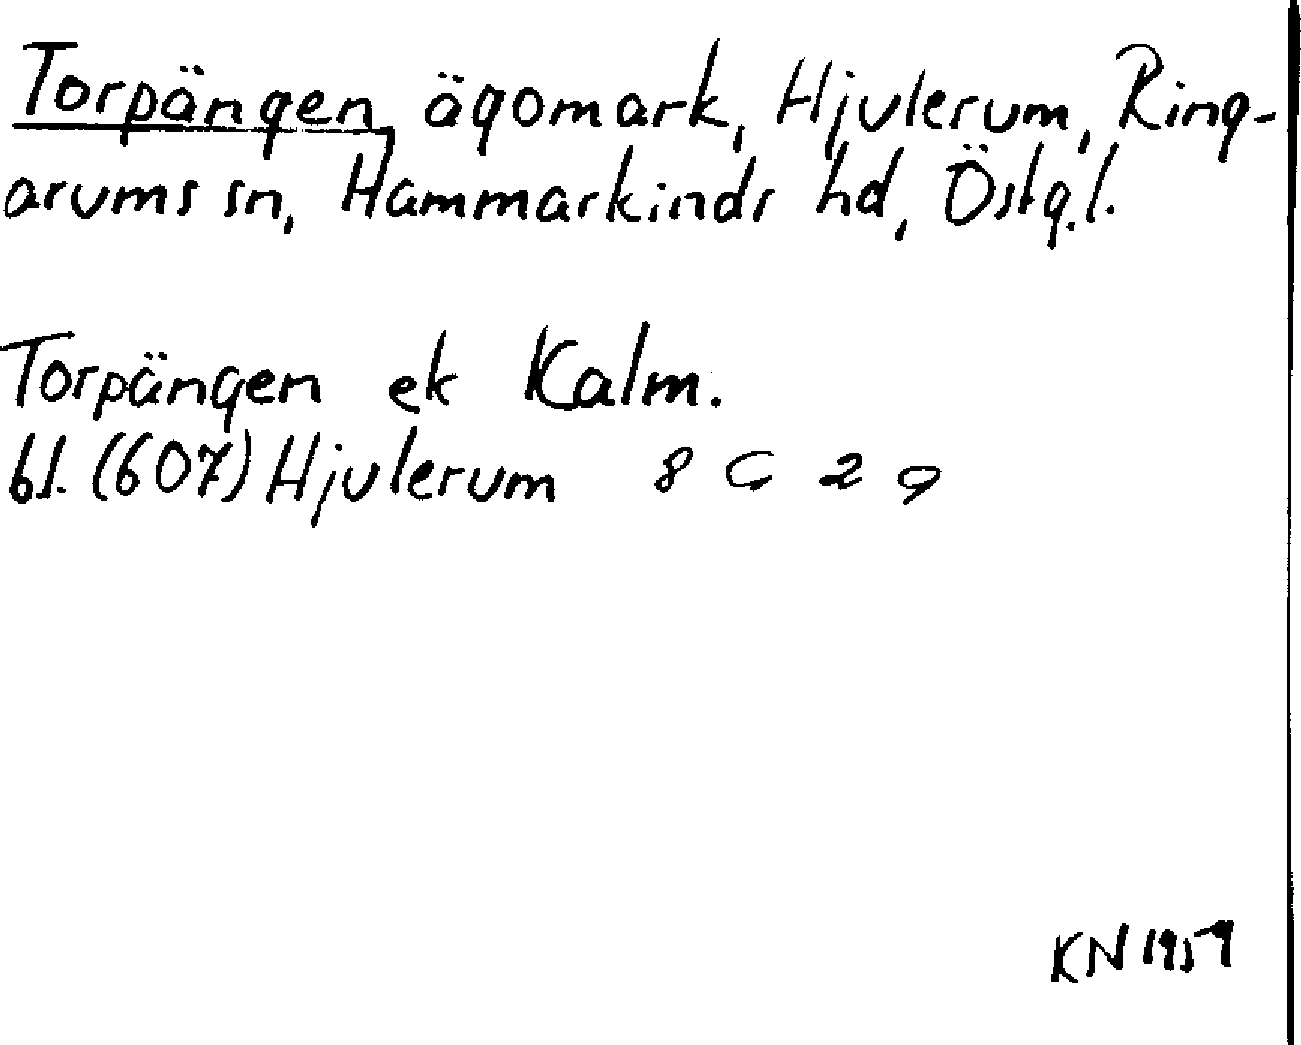 Torpängen, ägomark, Hjulerum, Ring-
arums sn, Hammarkinds hd, Östg.l.
Torpängen ek Kalm.
bl. (607) Hjulerum 8 G 2 9
KN 1959